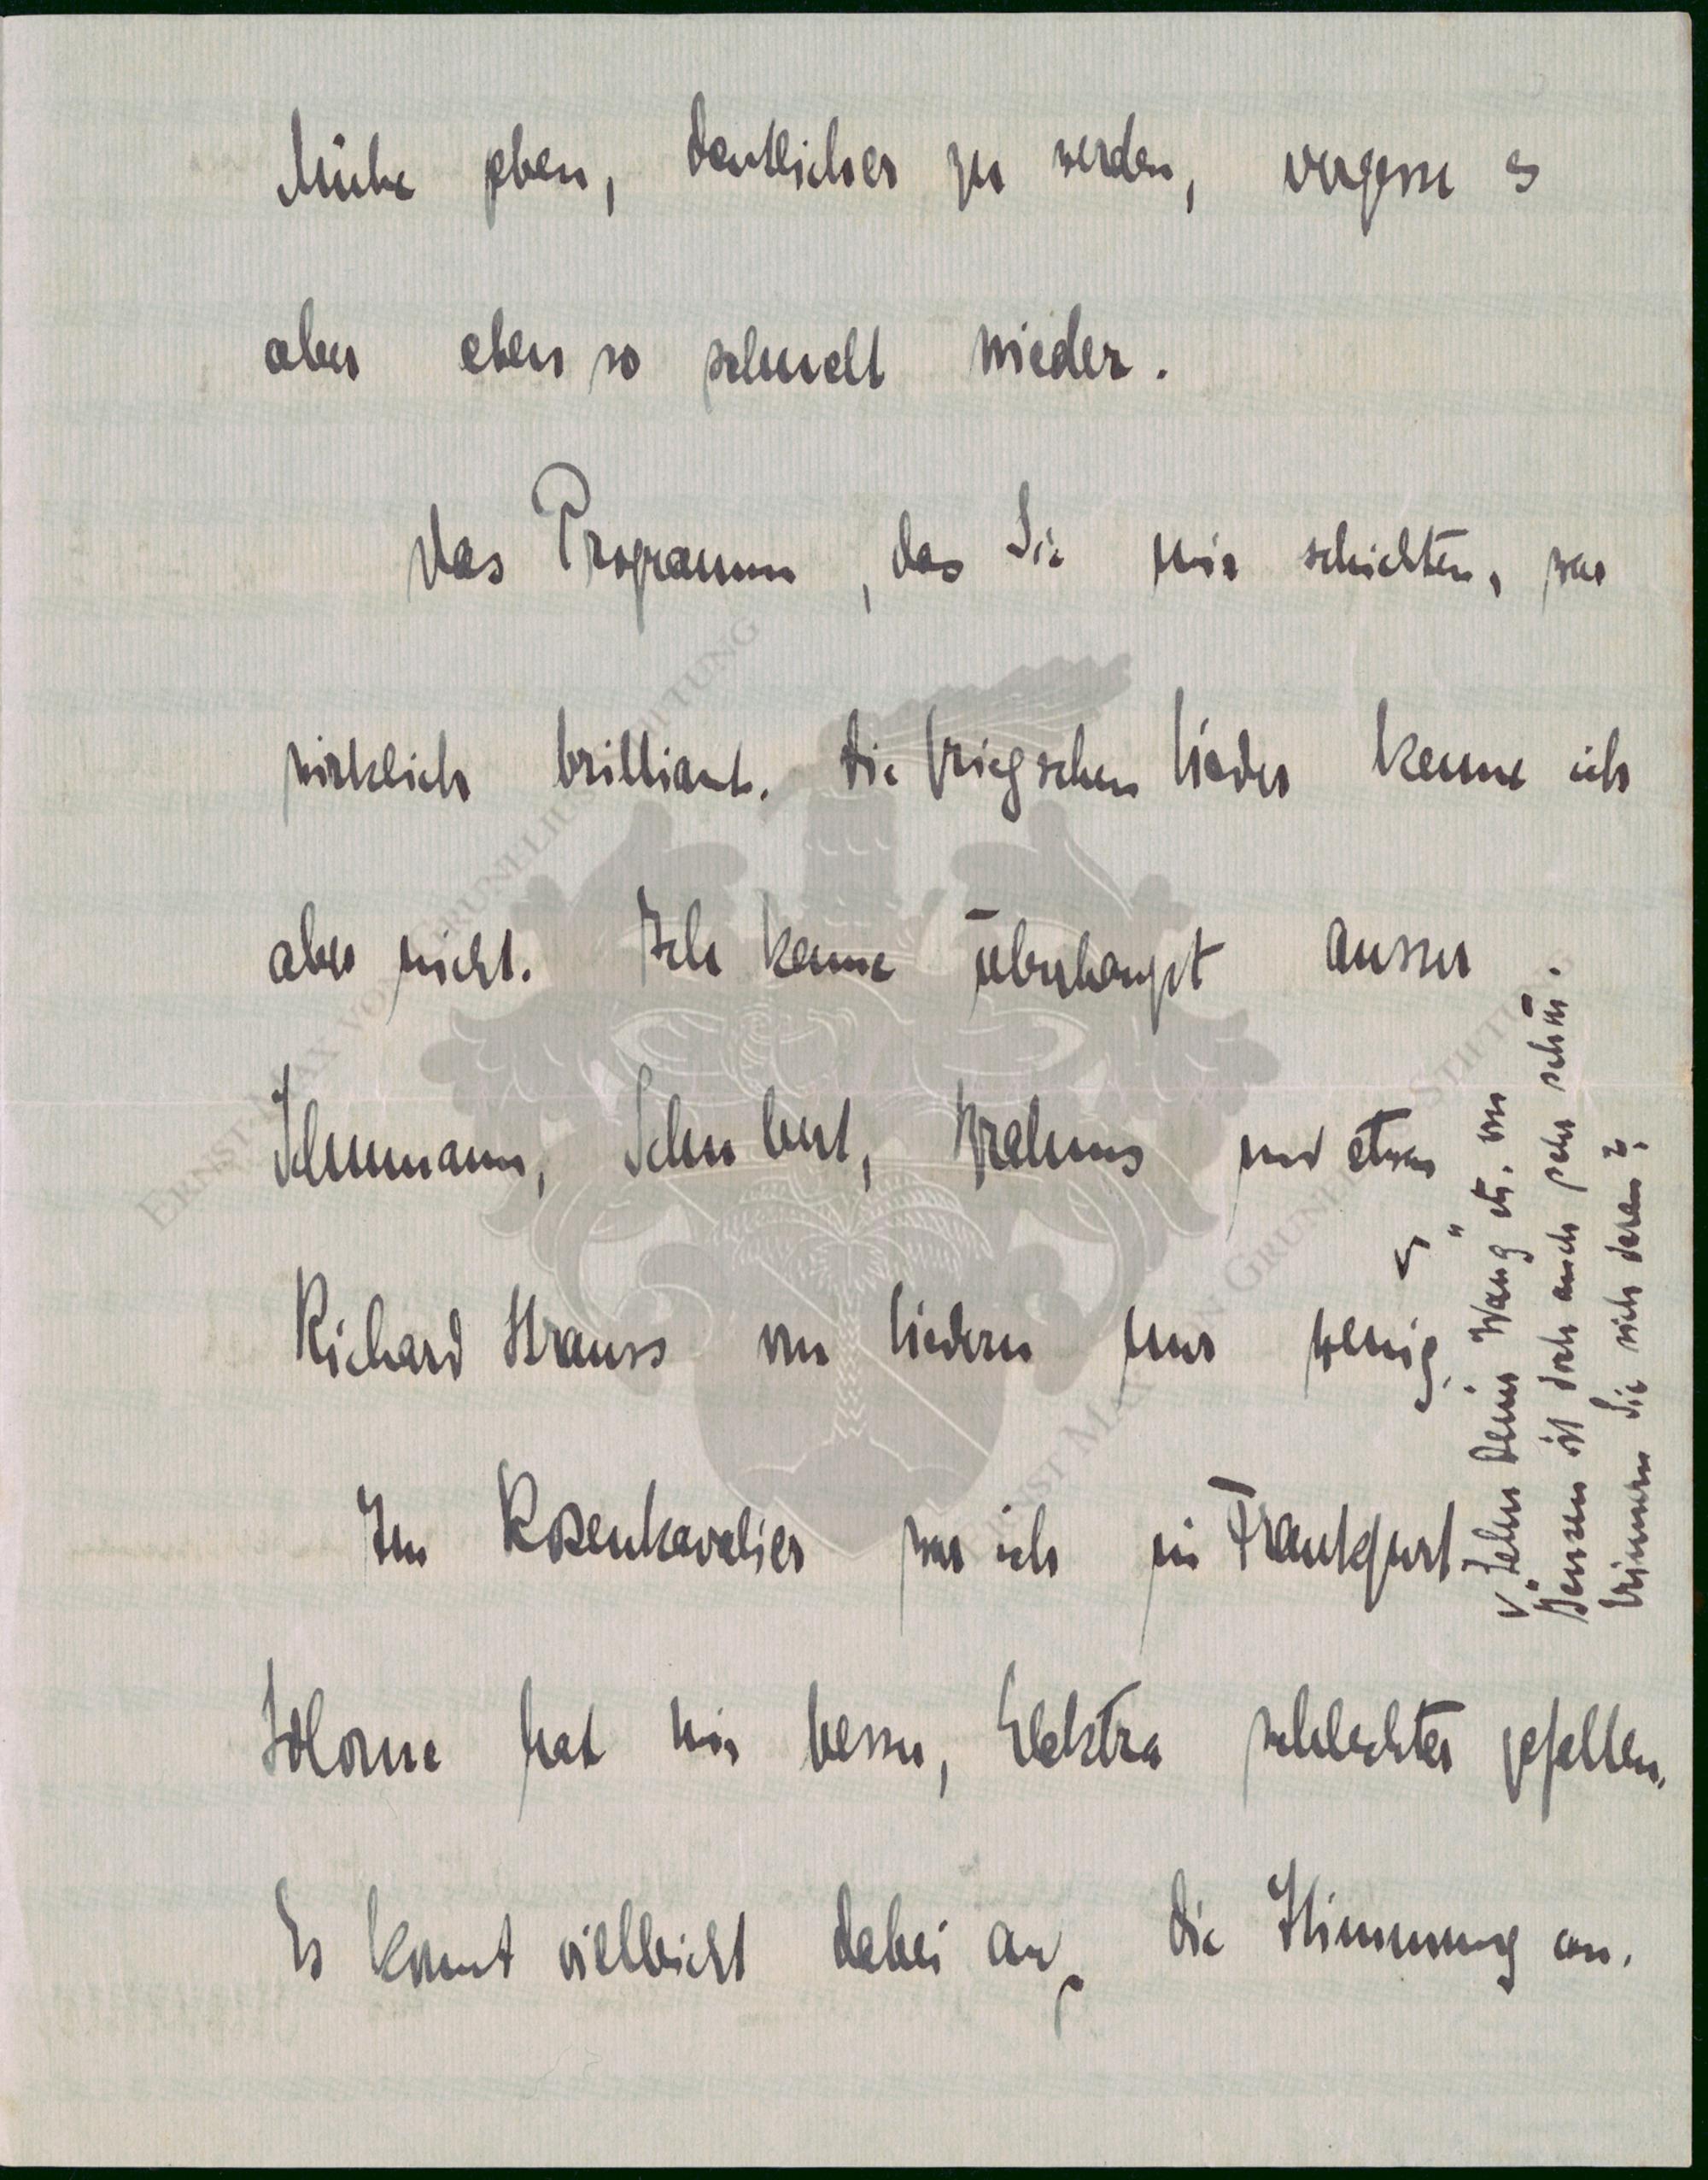 Mühe geben, deutlicher zu werden, vergesse es
aber eben so schnell wieder.
Das Programm, das Sie mir schickten, war
wirklich brilliant. Die Griegschen Lieder kenne ich
aber nicht. Ich kenne überhaupt ausser
Schumann, Schubert, Brahms und etwas
Richard Strauss von Liedern nur wenig.
Im Rosenkavalier war ich in Frankfurt.
Salome hat mir besser, Elektra schlechter gefallen.
Es kommt vielleicht dabei auf die Stimmung an.
„Lehn deine Wang" etc. von
Jensen ist doch auch sehr schön.
Erinnern Sie sich daran?
ERNST MAX VON GRUNELIUS-STIFTUNG
ERNST MAX VON GRUNELIUS-STIFTUNG